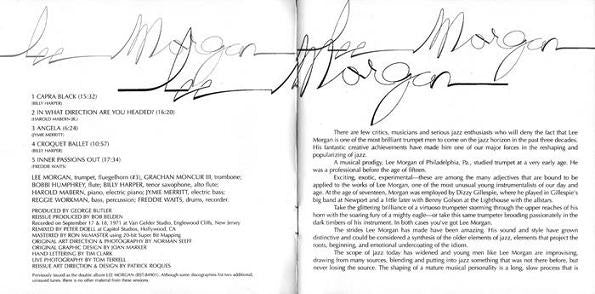 Lee Morgan Lee Morgan
Lee Morgan
1 CAPRA BLACK (15:32)
(BILLY HARPER)
2 IN WHAT DIRECTION ARE YOU HEADED? (16:20)
(HAROLD MABERN JR.)
3 ANGELA (6:24)
(JYMIE MERRITT)
4 CROQUET BALLET (10:57)
(BILLY HARPER)
5 INNER PASSIONS OUT (17:34)
(FREDDIE WAITS)
LEE MORGAN, trumpet, fluegelhorn (#3), GRACHAN MONCUR III, trombone;
BOBBI HUMPHREY, flute; BILLY HARPER, tenor saxophone, alto flute;
HAROLD MABERN, piano, electric piano; JYMIE MERRITT, electric bass;
REGGIE WORKMAN, bass, percussion; FREDDIE WAITS, drums, recorder.
PRODUCED BY GEORGE BUTLER
REISSUE PRODUCED BY BOB BELDEN
Recorded on September 17 & 18, 1971 at Van Gelder Studio, Englewood Cliffs, New Jersey
REMIXED BY PETER DOELL at Capitol Studios, Hollywood, CA
MASTERED BY RON McMASTER using 20-bit Super Bit Mapping
ORIGINAL ART DIRECTION & PHOTOGRAPHY BY NORMAN SEEFF
ORIGINAL GRAPHIC DESIGN BY JOAN MARKER
HAND LETTERING BY TIM CLARK
LIVE PHOTOGRAPHY BY TOM TERRELL
REISSUE ART DIRECTION & DESIGN BY PATRICK ROQUES
Previously issued as the double album LEE MORGAN (BST-84901). Although some discographies list two additional,
untitled tunes, there is no other material from these sessions.
There are few critics, musicians and serious jazz enthusiasts who will deny the fact that Lee
Morgan is one of the most brilliant trumpet men to come on the jazz horizon in the past three decades.
His fantastic creative achievements have made him one of our major forces in the reshaping and
popularizing of jazz.
A musical prodigy, Lee Morgan of Philadelphia, Pa., studied trumpet at a very early age. He
was a professional before the age of fifteen.
Exciting, exotic, experimental—these are among the many adjectives that are bound to be
applied to the works of Lee Morgan, one of the most unusual young instrumentalists of our day and
age. At the age of seventeen, Morgan was employed by Dizzy Gillespie, where he played in Gillespie's
big band at Newport and a little later with Benny Golson at the Lighthouse with the allstars.
Take the glittering brilliance of a virtuoso trumpeter storming through the upper reaches of his
horn with the soaring fury of a mighty eagle—or take this same trumpeter brooding passionately in the
dark timbers of his instrument. In both cases you've got Lee Morgan.
The strides Lee Morgan has made have been amazing. His sound and style have grown
distinctive and could be considered a synthesis of the older elements of jazz, elements that project the
roots, beginning, and emotional undercoating of the idiom.
The scope of jazz today has widened and young men like Lee Morgan are improvising,
drawing from many sources, blending and putting into jazz something that was not there before, but
never losing the source. The shaping of a mature musical personality is a long, slow process that is